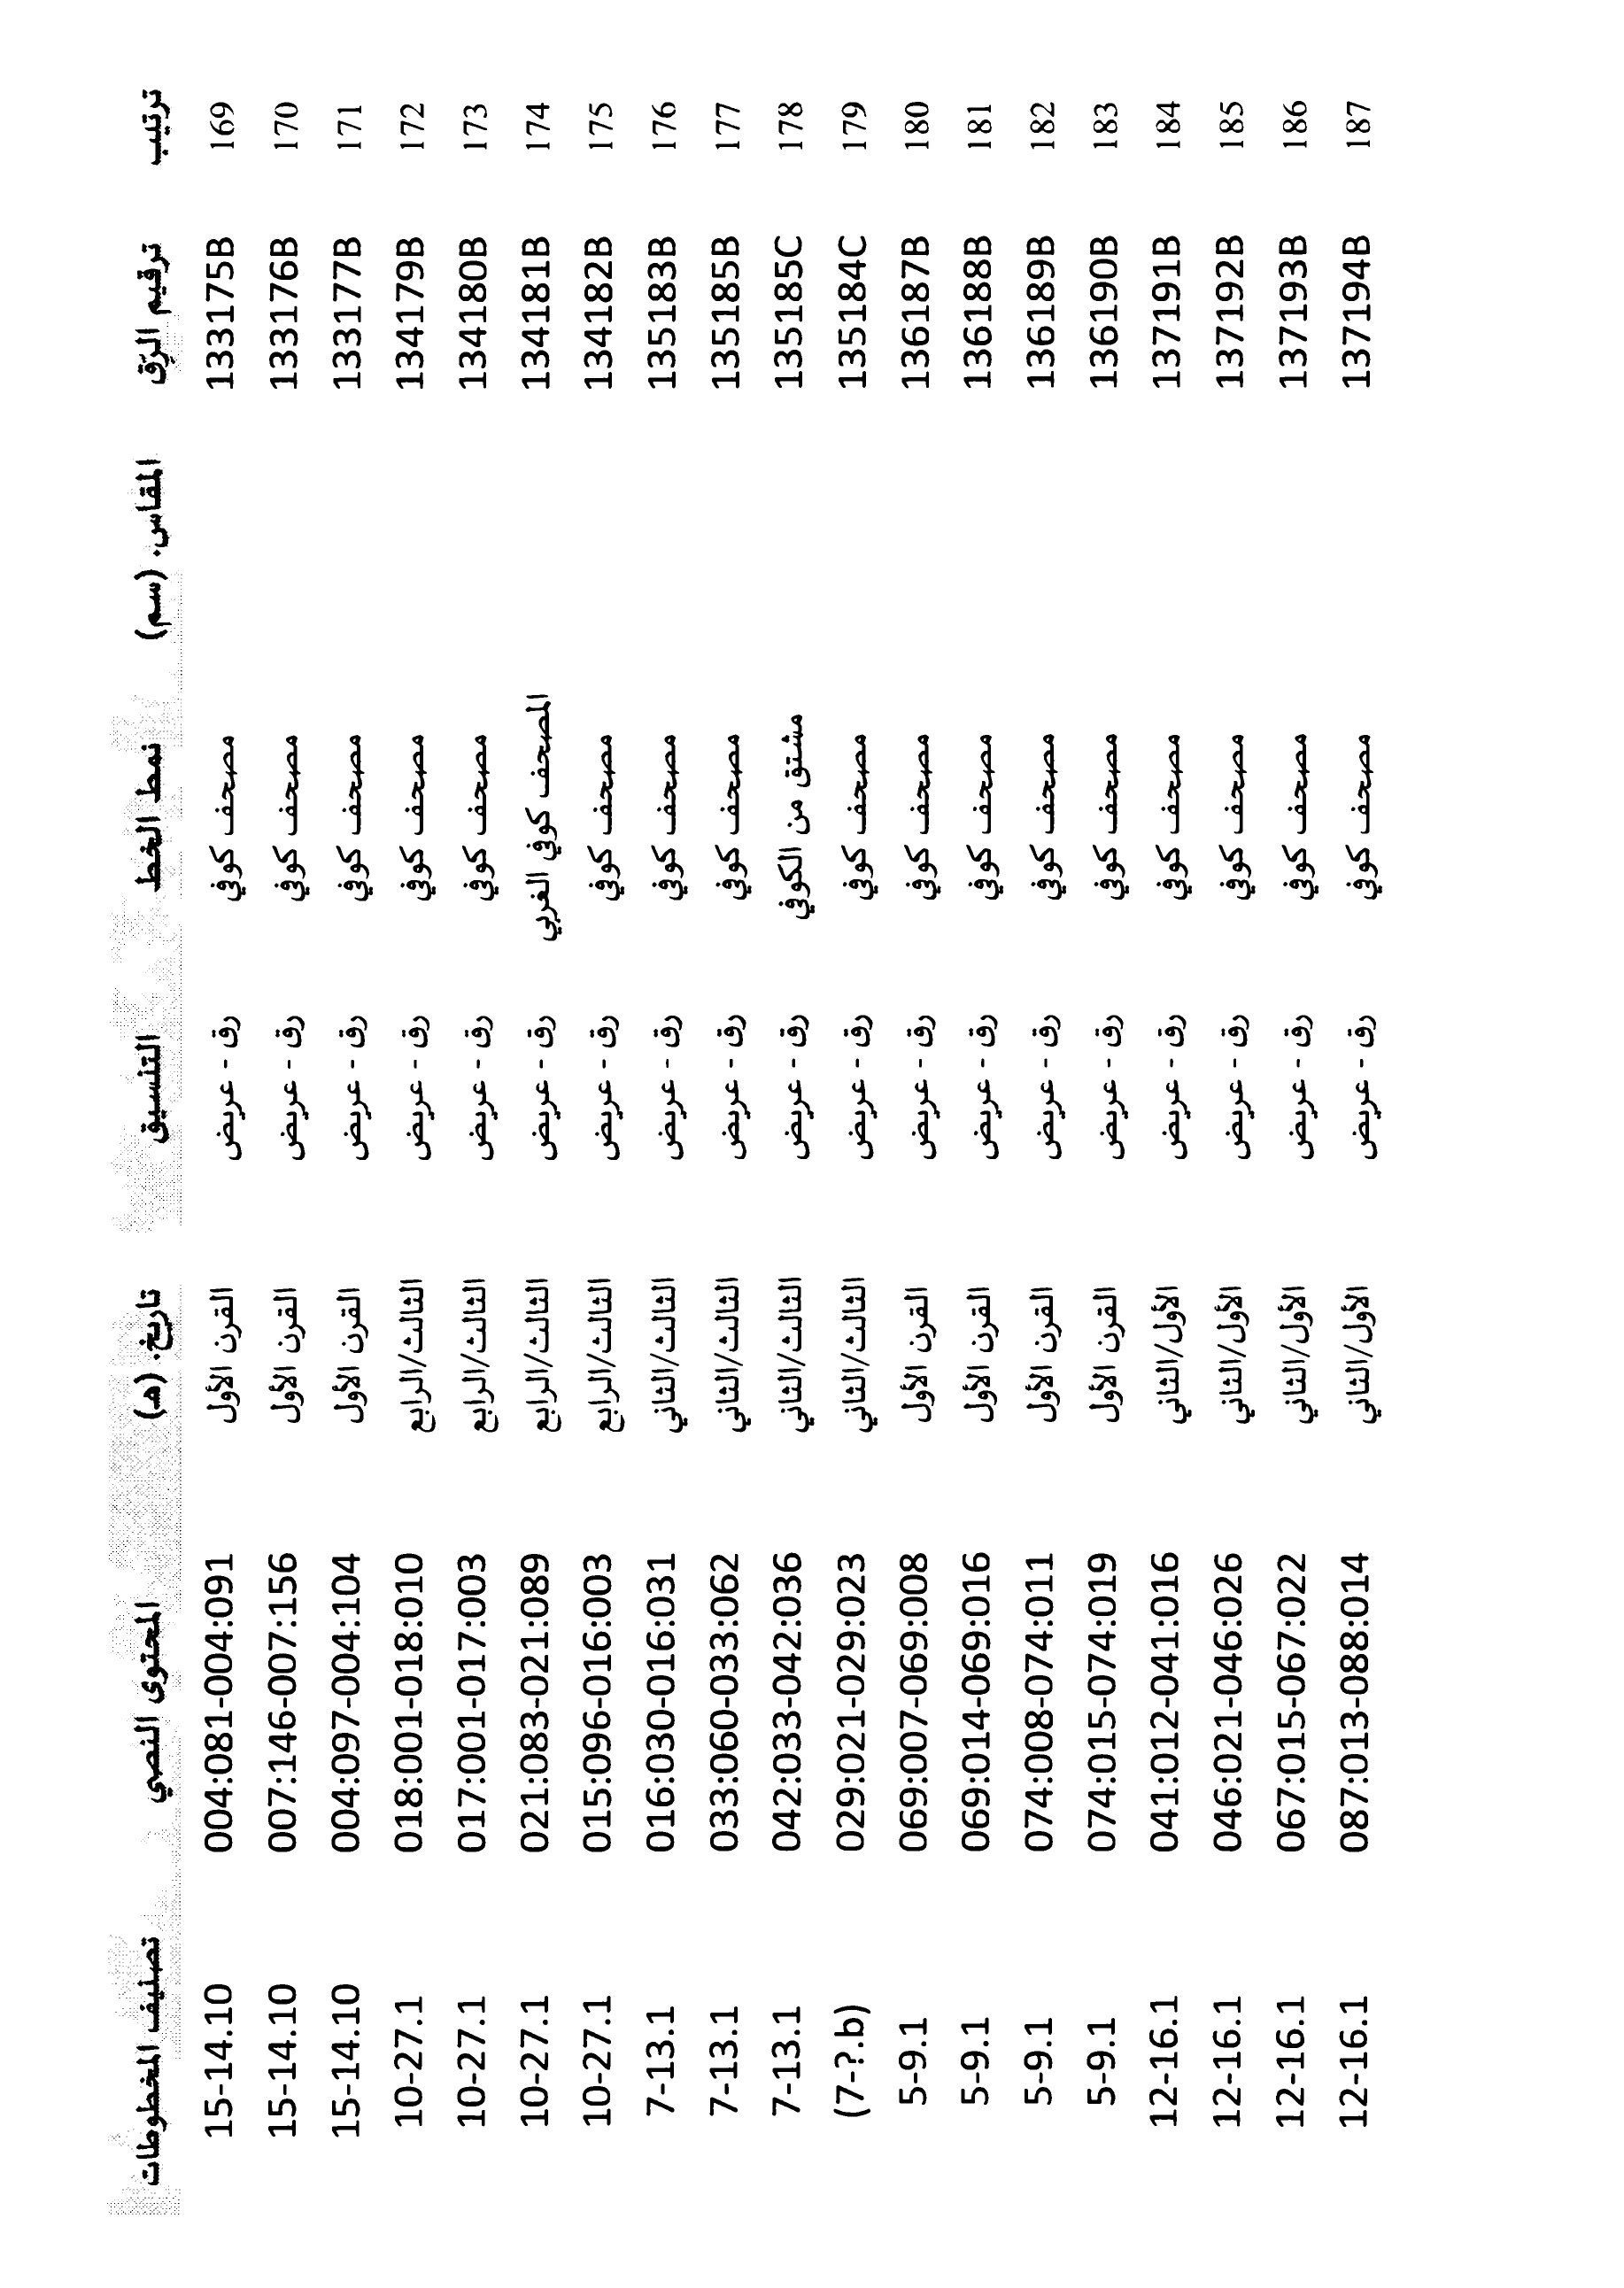 ترتيب ترقيم الرَّق المقاس. (سم) نمط الخط التنسيق تاريخ. (هـ) المحتوى النصي تصنيف المخطوطات
169 133175B مصحف كوفي رق - عريض القرن الأول 004:081-004:091 15-14.10
170 133176B مصحف كوفي رق - عريض القرن الأول 007:146-007:156 15-14.10
171 133177B مصحف كوفي رق - عريض القرن الأول 004:097-004:104 15-14.10
172 134179B مصحف كوفي رق - عريض الثالث/الرابع 018:001-018:010 10-27.1
173 134180B مصحف كوفي رق - عريض الثالث/الرابع 017:001-017:003 10-27.1
174 134181B المصحف كوفي الغربي رق - عريض الثالث/الرابع 021:083-021:089 10-27.1
175 134182B مصحف كوفي رق - عريض الثالث/الرابع 015:096-016:003 10-27.1
176 135183B مصحف كوفي رق - عريض الثالث/الثاني 016:030-016:031 7-13.1
177 135185B مصحف كوفي رق - عريض الثالث/الثاني 033:060-033:062 7-13.1
178 135185C مشتق من الكوفي رق - عريض الثالث/الثاني 042:033-042:036 7-13.1
179 135184C مصحف كوفي رق - عريض الثالث/الثاني 029:021-029:023 (7-?.b)
180 136187B مصحف كوفي رق - عريض القرن الأول 069:007-069:008 5-9.1
181 136188B مصحف كوفي رق - عريض القرن الأول 069:014-069:016 5-9.1
182 136189B مصحف كوفي رق - عريض القرن الأول 074:008-074:011 5-9.1
183 136190B مصحف كوفي رق - عريض القرن الأول 074:015-074:019 5-9.1
184 137191B مصحف كوفي رق - عريض الأول/الثاني 041:012-041:016 12-16.1
185 137192B مصحف كوفي رق - عريض الأول/الثاني 046:021-046:026 12-16.1
186 137193B مصحف كوفي رق - عريض الأول/الثاني 067:015-067:022 12-16.1
187 137194B مصحف كوفي رق - عريض الأول/الثاني 087:013-088:014 12-16.1